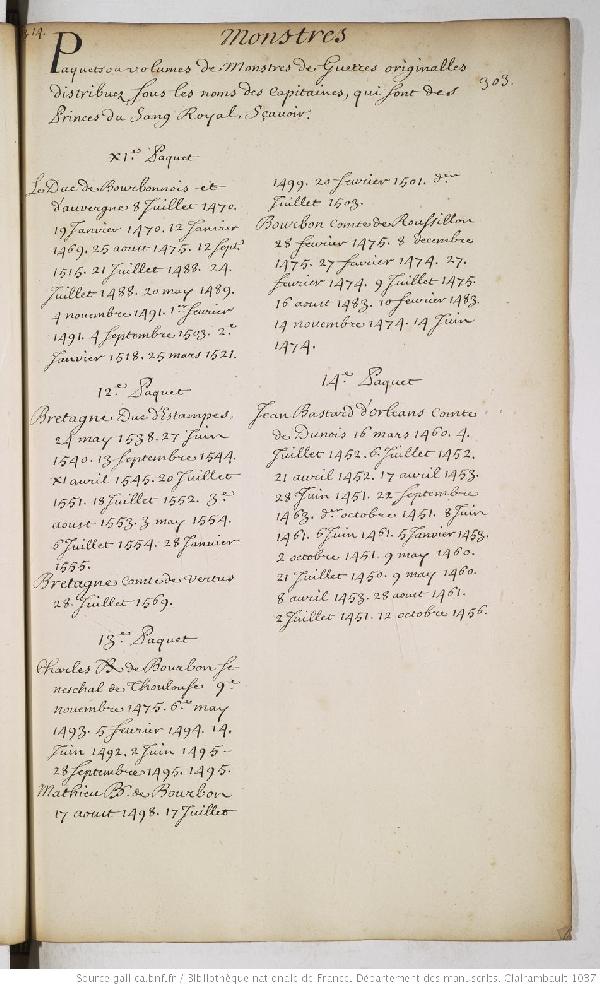 314.
Monstres
Paquets ou volumes de Monstres de Guerres originalles
distribuez sous les noms des Capitaines, qui sont des
Princes du Sang Royal. Sçavoir.
303.
XI.e Paquet
Le Duc de Bourbonnois et
d'auvergne 8 Juillet 1470.
19 Janvier 1470. 12 Janvier
1469. 25 aout 1475. 12 Sept.
1515. 21 Juillet 1488. 24.
Juillet 1488. 20 may 1489.
4 novembre 1491. 1.er fevrier
1491. 4 septembre 1503. 2.e
Janvier 1518. 25 mars 1521.
12.e Paquet
Bretagne Duc d'Estampes,
24 may 1538. 27 Juin
1540. 13 septembre 1544.
XI avril 1545. 20 Juillet
1551. 18 Juillet 1552. 3.e
aoust 1553. 3 may 1554.
6 Juillet 1554. 28 Janvier
1555.
Bretagne comte de Vertus
28. Juillet 1569.
13.e Paquet
Charles B. de Bourbon Se-
neschal de Thoulouse 9.e
novembre 1475. 6.e may
1493. 5 fevrier 1494. 14.
Juin 1492. 2 Juin 1495-
28 septembre 1495. 1495.
Mathieu B. de Bourbon
17 aoust 1498. 17 Juillet
1499. 20 fevrier 1501. 3.e
Juillet 1503.
Bourbon Comte de Roussillon
28 fevrier 1475. 8 decembre
1475. 27 fevrier 1474. 27.
fevrier 1474. 9 Juillet 1475.
16 aoust 1483. 10 fevrier 1483.
14 novembre 1474. 14 Juin
1474.
14.e Paquet
Jean Bastard d'orleans Comte
de Dunois 16 mars 1460. 4.
Juillet 1452. 6 Juillet 1452.
21 avril 1452. 17 avril 1453.
28 Juin 1451. 22 septembre
1463. d.er octobre 1451. 8 Juin
1461. 6 Juin 1461. 5 Janvier 1453.
2 octobre 1451. 9 may 1460.
21 Juillet 1450. 9 may 1460.
8 avril 1453. 28 aoust 1461.
2 Juillet 1451. 12 octobre 1456.
Source gallica.bnf.fr / Bibliothèque nationale de France. Département des manuscrits. Clairambault 1037